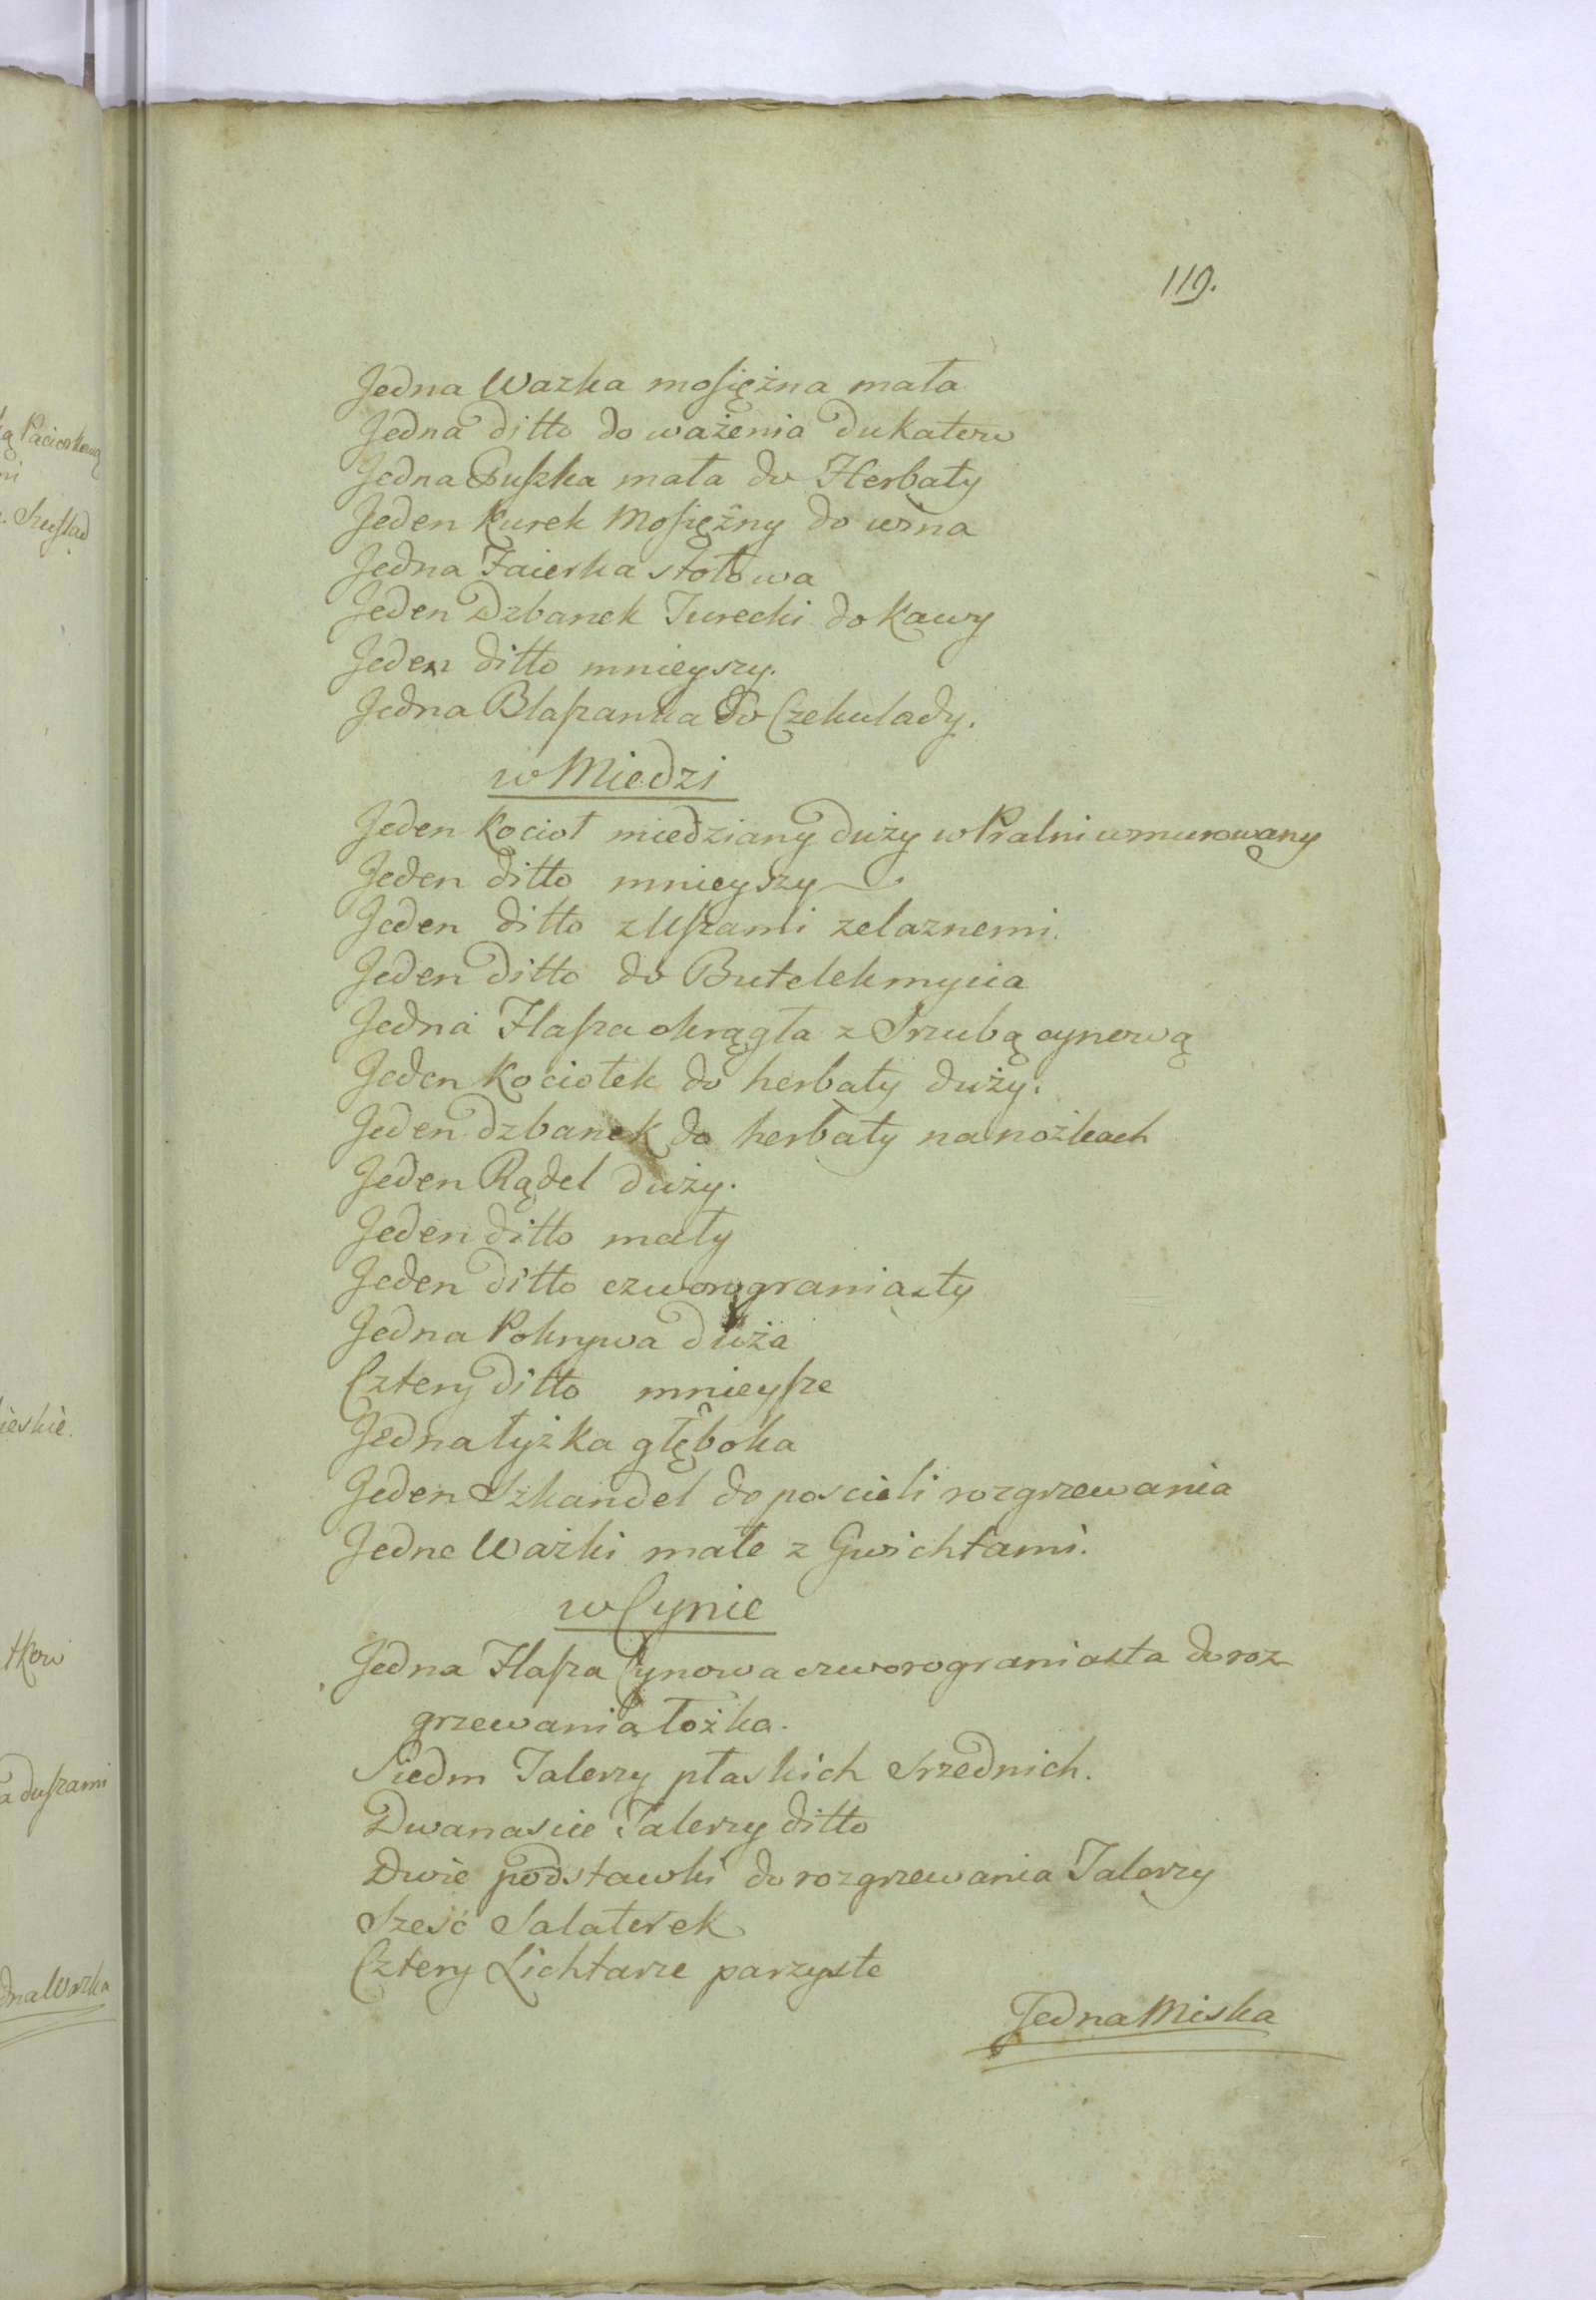 119.
Jedna Wazka mosiężna mała
Jedna ditto do ważenia Dukatow
Jedna Puszka mała do Herbaty
Jeden Kurek Mosiężny do wina
Jedna Faierka stołowa
Jeden Dzbanek Turecki do Kawy
Jeden ditto mnieyszy.
Jedna Blaszanka do Czekulady.
w Miedzi
Jeden Kocioł miedziany duży w Pralni wmurowany
Jeden ditto mnieyszy
Jeden ditto z Uszami zelaznemi.
Jeden ditto do Butelek mycia
Jedna Flasza okrągła z Srzubą cynową
Jeden Kociołek do herbaty duży.
Jeden dzbanek do herbaty na nożkach
Jeden Rądel duży.
Jeden ditto mały
Jeden ditto czworograniasty
Jedna Pokrywa duża
Cztery ditto mnieysze
Jedna łyżka głęboka
Jeden Szkandel do poscieli rozgrzewania
Jedne Ważki małe z Gwichtami.
w Cynie
Jedna Flasza Cynowa czworograniasta do roz
grzewania łożka.
Siedm Talerzy płaskich srzednich.
Dwanascie Talerzy ditto
Dwie podstawki do rozgrzewania Talerzy
Sześć Salaterek
Cztery Lichtarze parzyste
Jedna Miska
ieskie.
a duszami
dna Wazka